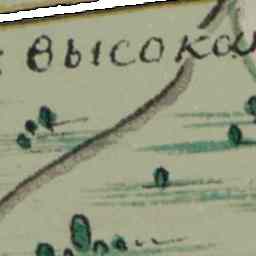 высокая